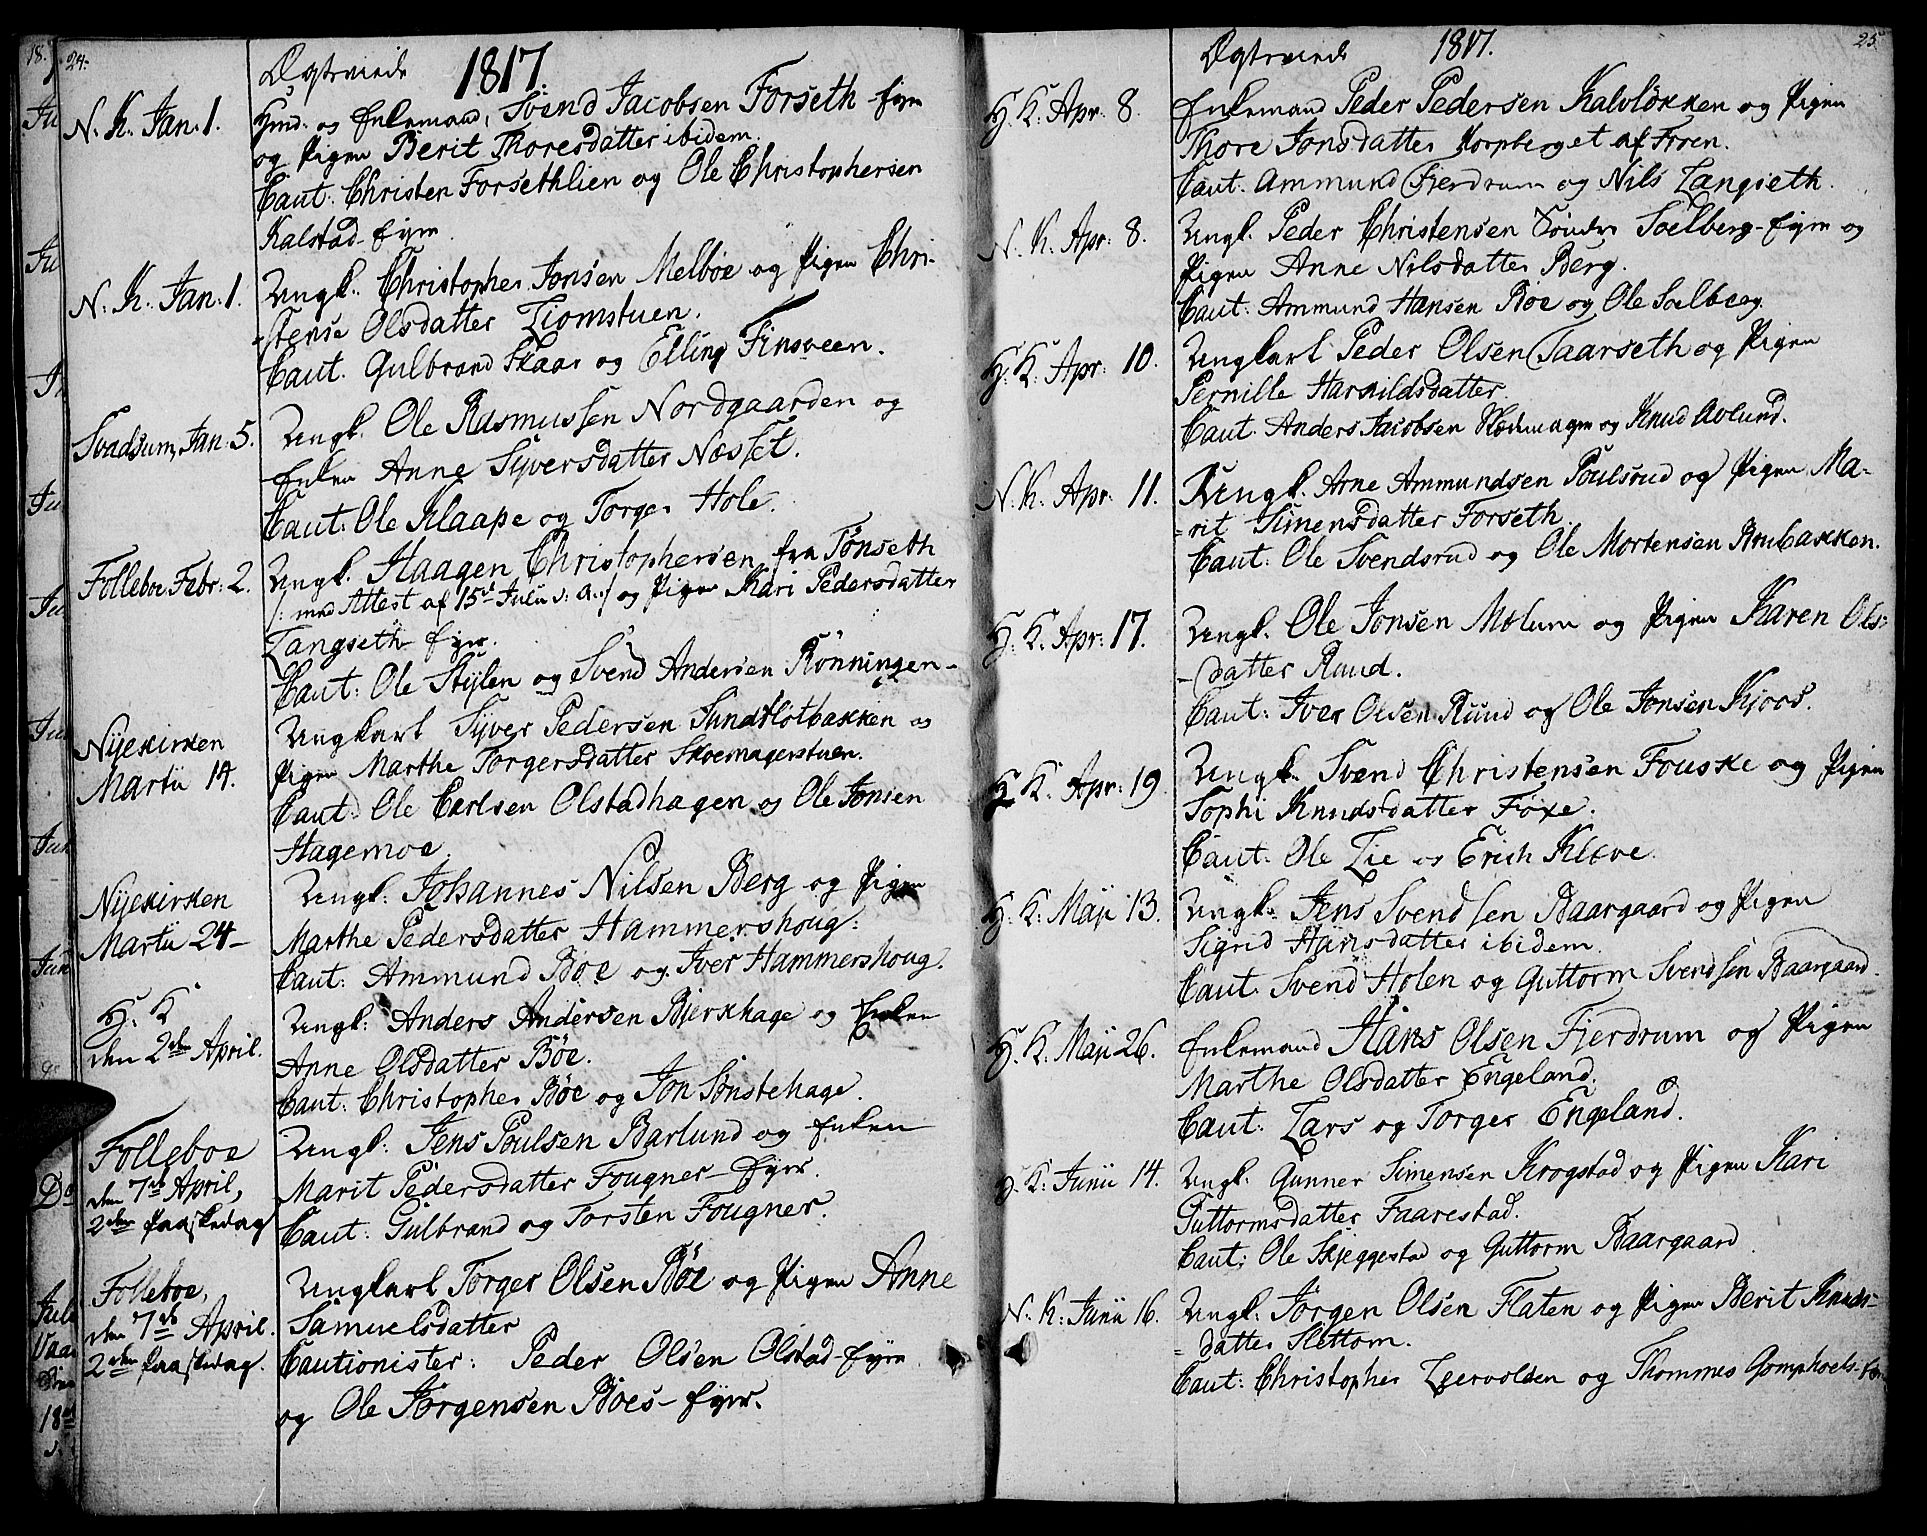 24.
Ægteviede 1817.
N. K. Jan: 1.
Huusmd. og Enkemand, Svend Jacobsen Forseth-Eyer
og Pigen Berit Thoresdatter ibidem.
Caut: Christen Forsethlien og Ole Christophersen
Kalstad-Eyer
N. K. Jan: 1.
Ungk. Christopher Jonsen Melbøe og Pigen Chri-
-stense Olsdatter Liomstuen.
Caut. Gulbrand Skaar og Elling Finsveen.
Svadsum, Jan: 5.
Ungk. Ole Rasmussen Nordgaarden og
Enken Anne Syversdatter Næsset.
Caut: Ole Klaape og Torger Hole.
Folleboe Febr: 2.
Ungk. Haagen Christophersen fra Tønseth
/: med Attest af 15de Julii :/ og Pigen Kari Pedersdatter
Langseth-Eyer.
Caut: Ole Stylen og Svend Andersen Rønningen-
Nyekirken
Martii 14.
Ungkarl Syver Pedersen Sundslotbakken og
Pigen Marthe Torgersdatter Skoemagerstuen.
Caut: Ole Carlsen Olstadhagen og Ole Jonsen
Hagemoe.
Nyekirken
Martii 24-
Ungk: Johannes Nilsen Berg og Pigen
Marthe Pedersdatter Hammershoug:
Caut: Ammund Bøe og Iver Hammershoug.
H. K.
den 2den April.
Ungk: Anders Andersen Bierkhage og Enken
Anne Olsdatter Bøe.
Caut: Christopher Bøe og Jon Sønstehage.
Folleboe
den 7de April,
2den Paaskedag
Ungk: Jens Poulsen Barlund og Enken
Marit Pedersdatter Fougner-Eyer.
Caut: Gulbrand og Torsten Fougner.
Folleboe,
den 7de April.
2den Paaskedag.
Ungkarl Torger Olsen Bøe og Pigen Anne
Samuelsdatter
Cautionister: Peder Olsen Olstad-Eyer
og Ole Jørgensen Bøes-Eyer.
25.
Ægteviede 1817.
H. K. Apr: 8.
Enkemand Peder Pedersen Kalvløkken og Pigen
Thore Jonsdatter Korpberget af Froen.
Caut: Ammund Fierdrum og Nils Langseth.
N. K. Apr: 8.
Ungk. Peder Christensen Sønder Soelberg-Eyer og
Pigen Anne Nilsdatter Berg.
Caut: Ammund Hansen Bøe og Ole Soelberg.
H. K. Apr: 10.
Ungkarl Peder Olsen Taarseth og Pigen
Pernille Harkildsdatter.
Caut. Anders Jacobsen og Knud Avlund.
N. K. Apr: 11.
Ungk. Arne Ammundsen Poulsrud og Pigen Ma-
-rit Simensdatter Forseth.
Caut: Ole Svendsrud og Ole Mortensen Brubakken.
H. K. Apr: 17.
Ungk. Ole Jonsen Molum og Pigen Karen Ols-
-datter Ruud.
Caut: Iver Olsen Ruud og Ole Jonsen Kjoos.
H. K. Apr: 19.
Ungk. Svend Christensen Fouske og Pigen
Sophi Knudsdatter Foxe.
Caut: Ole Lie og Erich Kleve.
H. K. Maji 13.
Ungk. Jens Svendsen Baargaard og Pigen
Sigrid Hansdatter ibidem.
Caut. Svend Holen og Guttorm Svendsen Baargaard.
H. K. Maji 26.
Enkemand Hans Olsen Fierdrum og Pigen
Marthe Olsdatter Engeland.
Caut: Lars og Torger Engeland.
H. K: Junii 14.
Ungk. Gunner Simensen Krogstad og Pigen Kari
Guttormsdatter Faarestad.
Caut: Ole Skjeggestad og Guttorm Baargaard.
N. K. Junii 16.
Ungk: Jørgen Olsen Flaten og Pigen Berit Knuds-
-datter Slettom.
Caut: Christopher Leervolden og Thommes